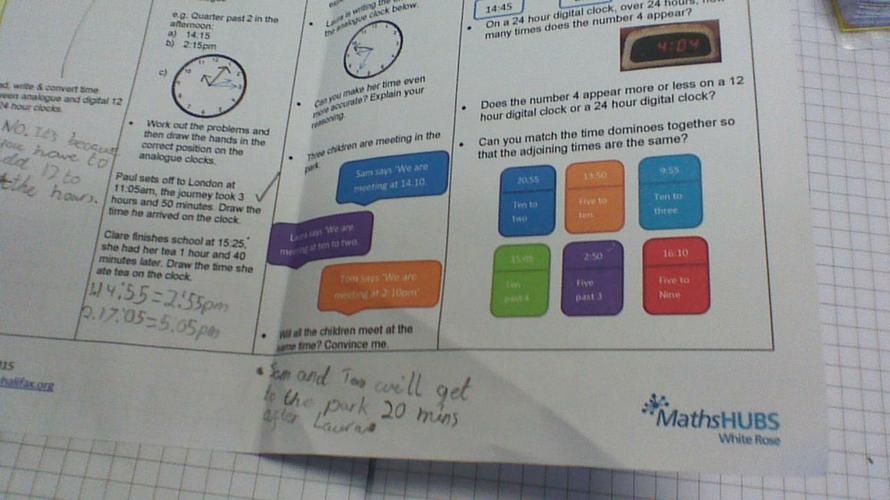 write & convert time
een analogue and digital 12
24 hour clocks.
NO. It's because
you have to
add 12 to
the hours.
15
halifax.org
e.g. Quarter past 2 in the
afternoon:
a) 14:15
b) 2:15pm
c)
Work out the problems and
then draw the hands in the
correct position on the
analogue clocks.
Paul sets off to London at
11:05am, the journey took 3
hours and 50 minutes. Draw the
time he arrived on the clock.
Clare finishes school at 15:25,
she had her tea 1 hour and 40
minutes later. Draw the time she
ate tea on the clock.
14:55=2:55pm
2.17:05=5:05pm
Laura is writing the
the analogue clock below.
Can you make her time even
more accurate? Explain your
reasoning.
Three children are meeting in the
park.
Sam says 'We are
meeting at 14:10.
Laura says 'We are
meeting at ten to two.
Tom says 'We are
meeting at 2:10pm'
Will all the children meet at the
same time? Convince me.
Sam and Tom will get
to the park 20 mins
after Laura
14:45
On a 24 hour digital clock, over 24 hours, how
many times does the number 4 appear?
4:04
Does the number 4 appear more or less on a 12
hour digital clock or a 24 hour digital clock?
Can you match the time dominoes together so
that the adjoining times are the same?
20:55
Ten to
two
13:50
Five to
ten
9:55
Ten to
three
15:05
Ten
past 4
2:50
Five
past 3
16:10
Five to
Nine
MathsHUBS
White Rose